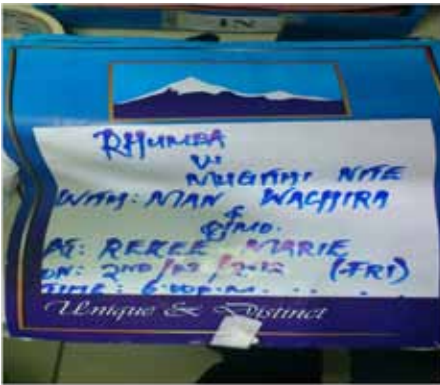 IN
RHUMBA
VS
MUGITHI NITE
WITH: MAN WACHIRA
&
AT: REKEE MARIE
ON: 2ND / (FRI)
TIME: 6:00P.M.
Unique & Distinct